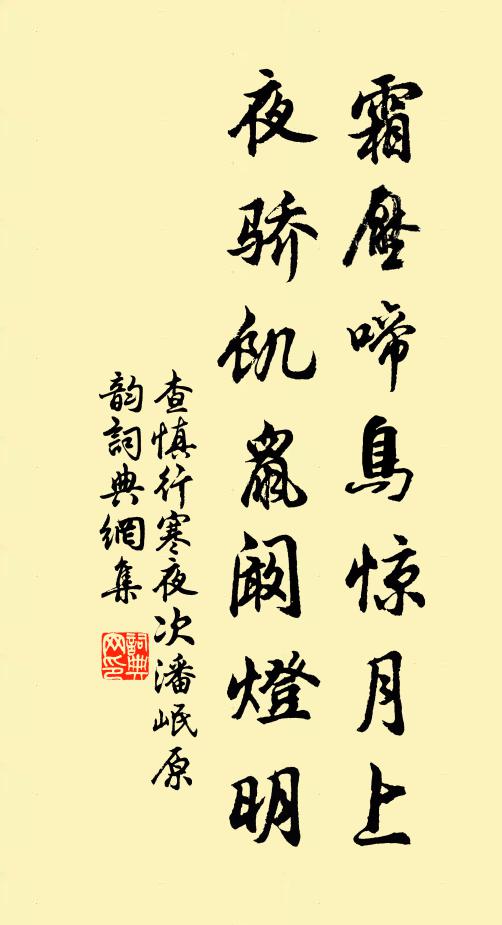 霜壓啼鳥惊月上
夜骄飢鼠阚燈明
查慎行寒夜次潘岷原
韵詞典網集
詞典网印